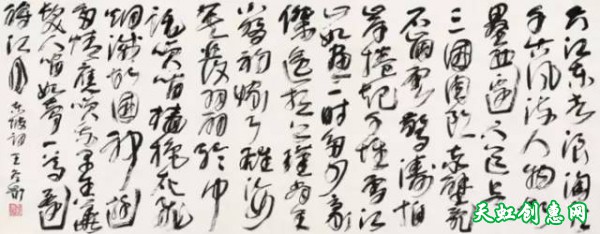 大江东去浪淘尽
千古风流人物故
垒西边人道是
三国周郎赤壁乱
石崩云惊涛拍
岸捲起千堆雪江
山如画一时多少豪
傑遥想公瑾当年
小乔初嫁了雄姿
英发羽扇纶巾
谈笑间樯橹灰飞
烟灭故国神游
多情应笑我早生華
髮人间如梦一尊还
酹江月 东坡词 王
天虹创意网